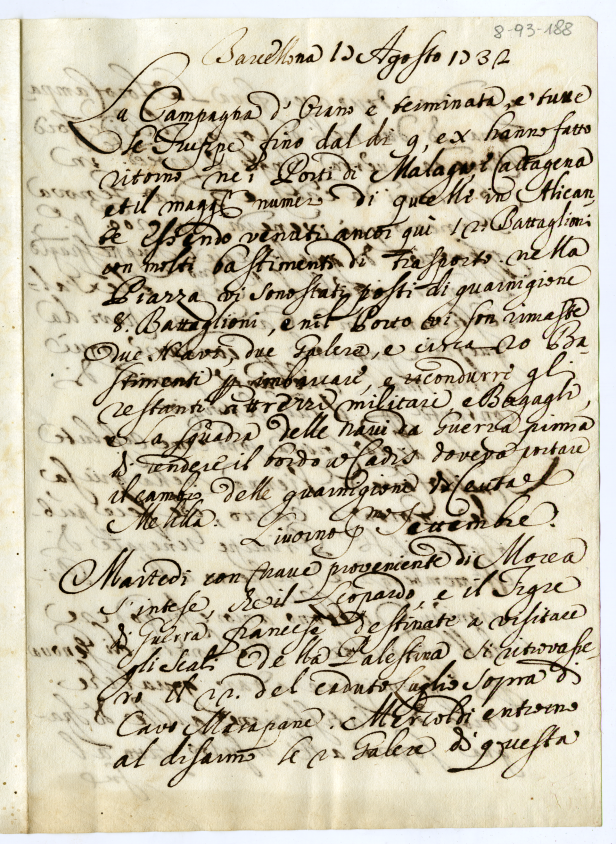 8-93-188
Barcellona 19 Agosto 1732
La Campagna d'Orano è terminata, e tutte
le Truppe fino dal dì 9, ex hanno fatto
ritorno nei Porti di Malaga, Cartagena
et il magg.e numero di quelle in Alican-
te essendo venuti ancor qui 12 Battaglioni
con molti bastimenti di Trasporto nella
Piazza vi sono stati posti di guarnigione
8. Battaglioni, e nel Porto vi son rimaste
due Navi, due Galere, e circa 20 Ba-
stimenti p imbarcare, e ricondurre gl
restanti attrezzi militari e Bagagli,
e La Squadra delle navi da Guerra prima
di rendere il bordo a Cadis doveva portare
il cambio delle guarnigioni di Ceuta e
Melilla.
Livorno p.mo Settembre.
Martedì con Nave proveniente di Morea
s'intese, che il Leopardo, e il Tigre
di Guerra Francese destinate a visitare
gli Scali della Palestina si ritrovasse-
ro il 22 del caduto Luglio Sopra di
Cavo Matapane. Mercoldì entrorno
al disarmo le 2 Galere di questa